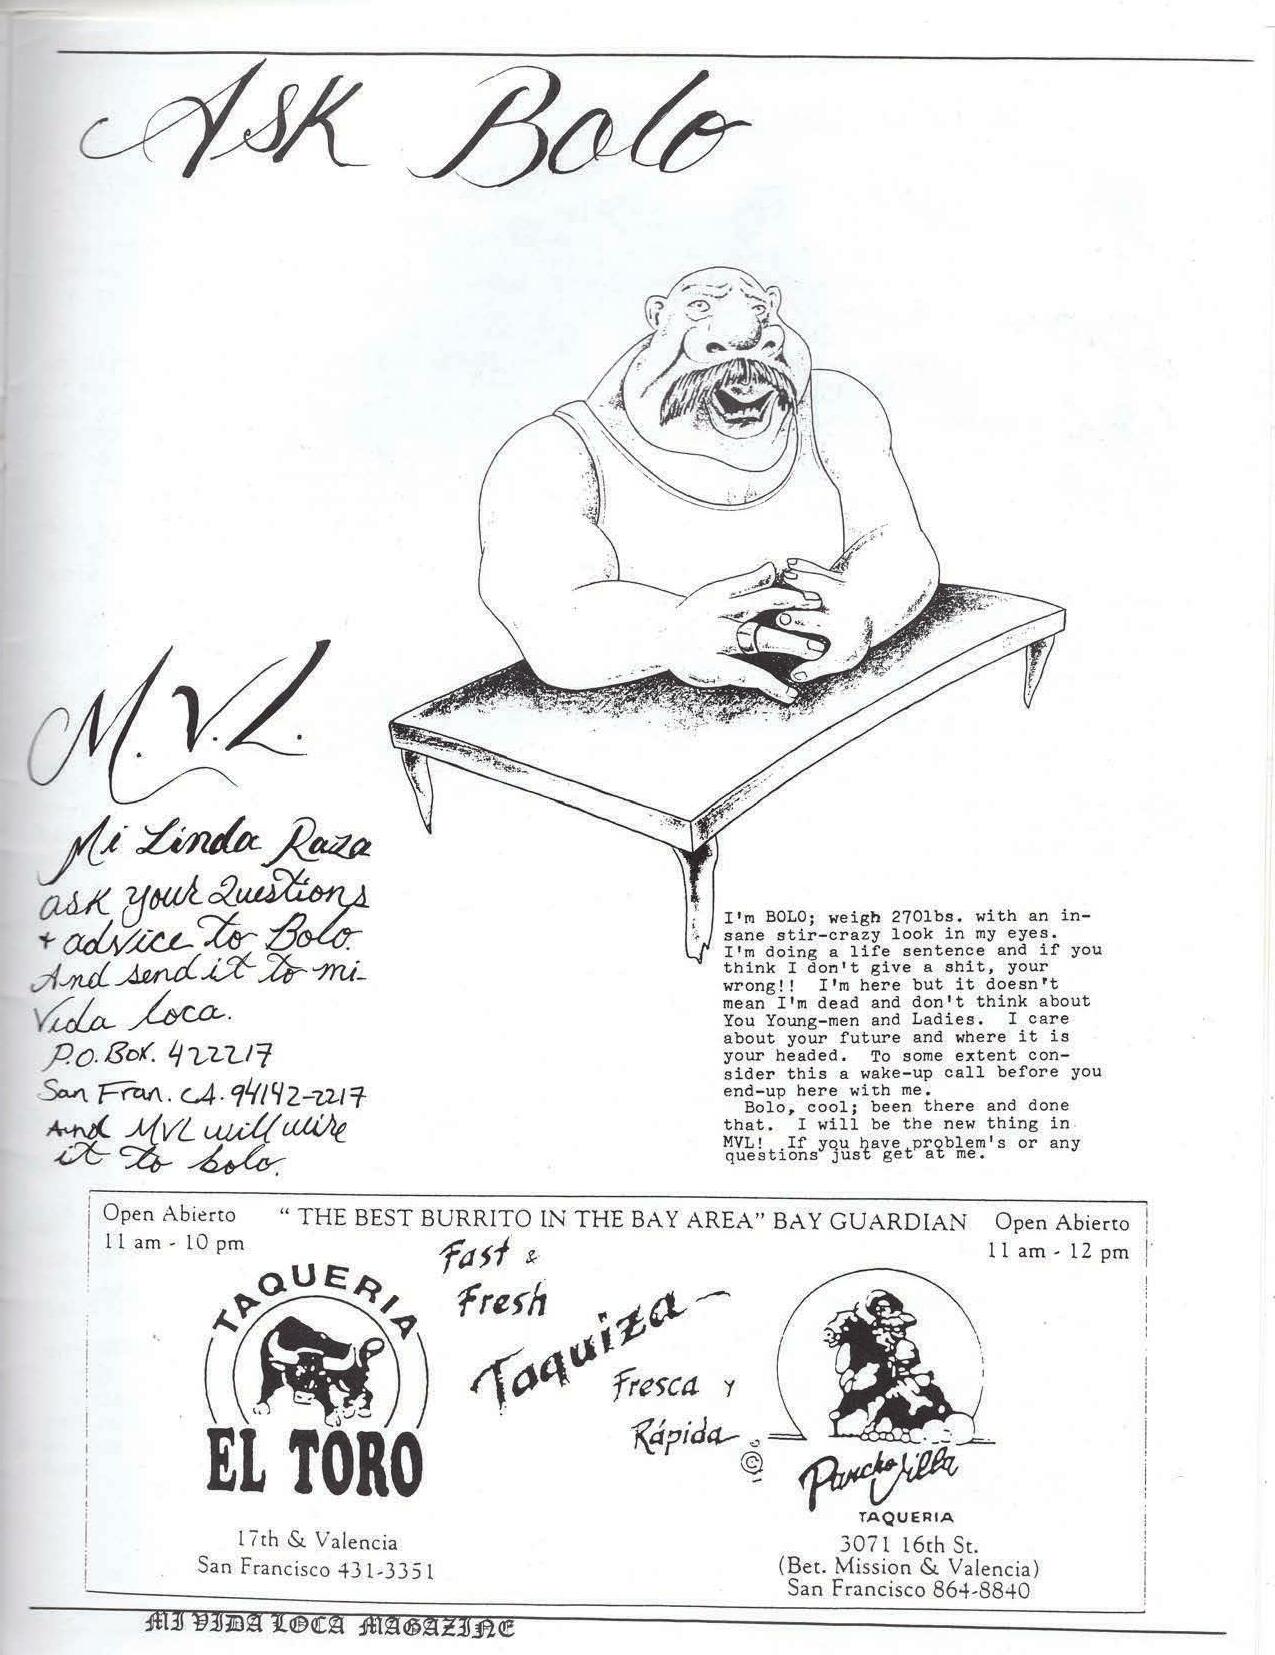 Ask Bolo
M.V.L.
Mi Linda Raza
ask your Questions
+ advice to Bolo.
And send it to mi-
Vida loca.
P.O. Box. 422217
San Fran. CA. 94142-2217
And MVL will wire
it to bolo.
I'm BOLO; weigh 270lbs. with an in-
sane stir-crazy look in my eyes.
I'm doing a life sentence and if you
think I don't give a shit, your
wrong!!  I'm here but it doesn't
mean I'm dead and don't think about
You Young-men and Ladies.  I care
about your future and where it is
your headed.  To some extent con-
sider this a wake-up call before you
end-up here with me.
Bolo, cool; been there and done
that.  I will be the new thing in
MVL!  If you have problem's or any
questions just get at me.
Open Abierto
11 am - 10 pm
" THE BEST BURRITO IN THE BAY AREA" BAY GUARDIAN
Open Abierto
11 am - 12 pm
Fast &
Fresh
Taquiza
Fresca y
Rápida
©
TAQUERIA
EL TORO
17th & Valencia
San Francisco 431-3351
Pancho Villa
TAQUERIA
3071 16th St.
(Bet. Mission & Valencia)
San Francisco 864-8840
MI VIDA LOCA MAGAZINE